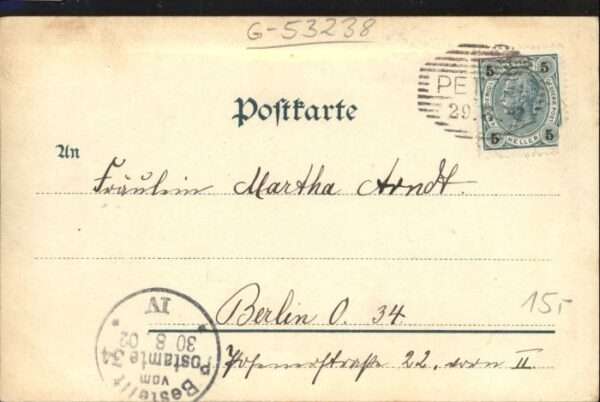 G-53238
5 5
PE
29.
5 HELLER 5
Postkarte
An
Fräulein Martha Arndt.
Berlin O. 34
15,-
Posenerstraße 22. vorn II
Bestellt
vom
Postamte 34
30 8. 02
IV